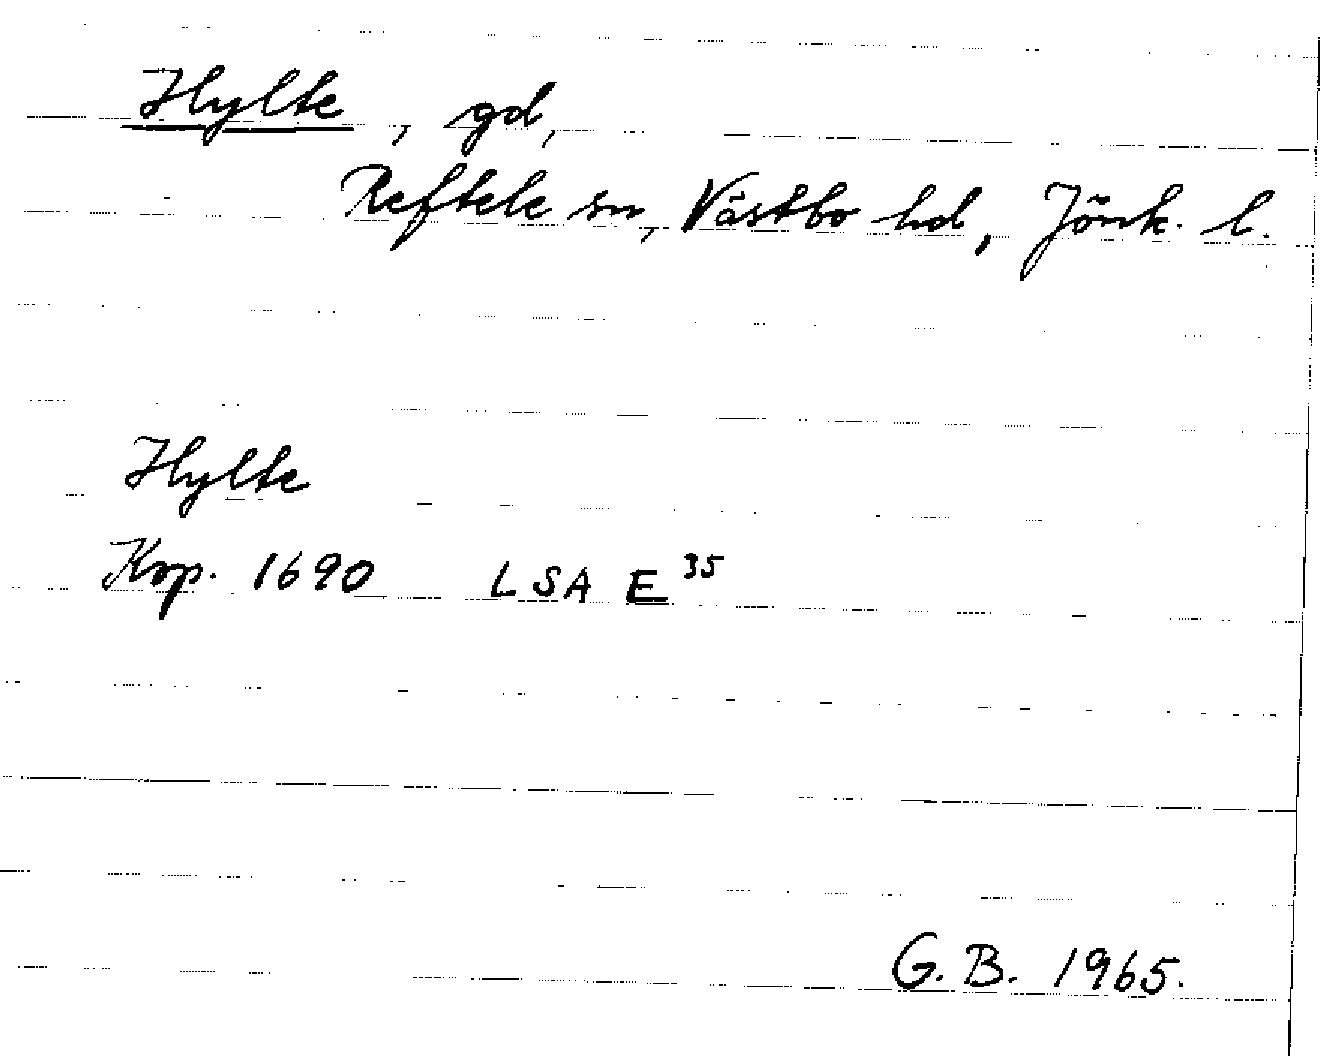 Hylte, gd,
Reftele sn, Västbo hd, Jönk. l.
Hylte
Krp. 1690 LSA E 35
G.B. 1965.